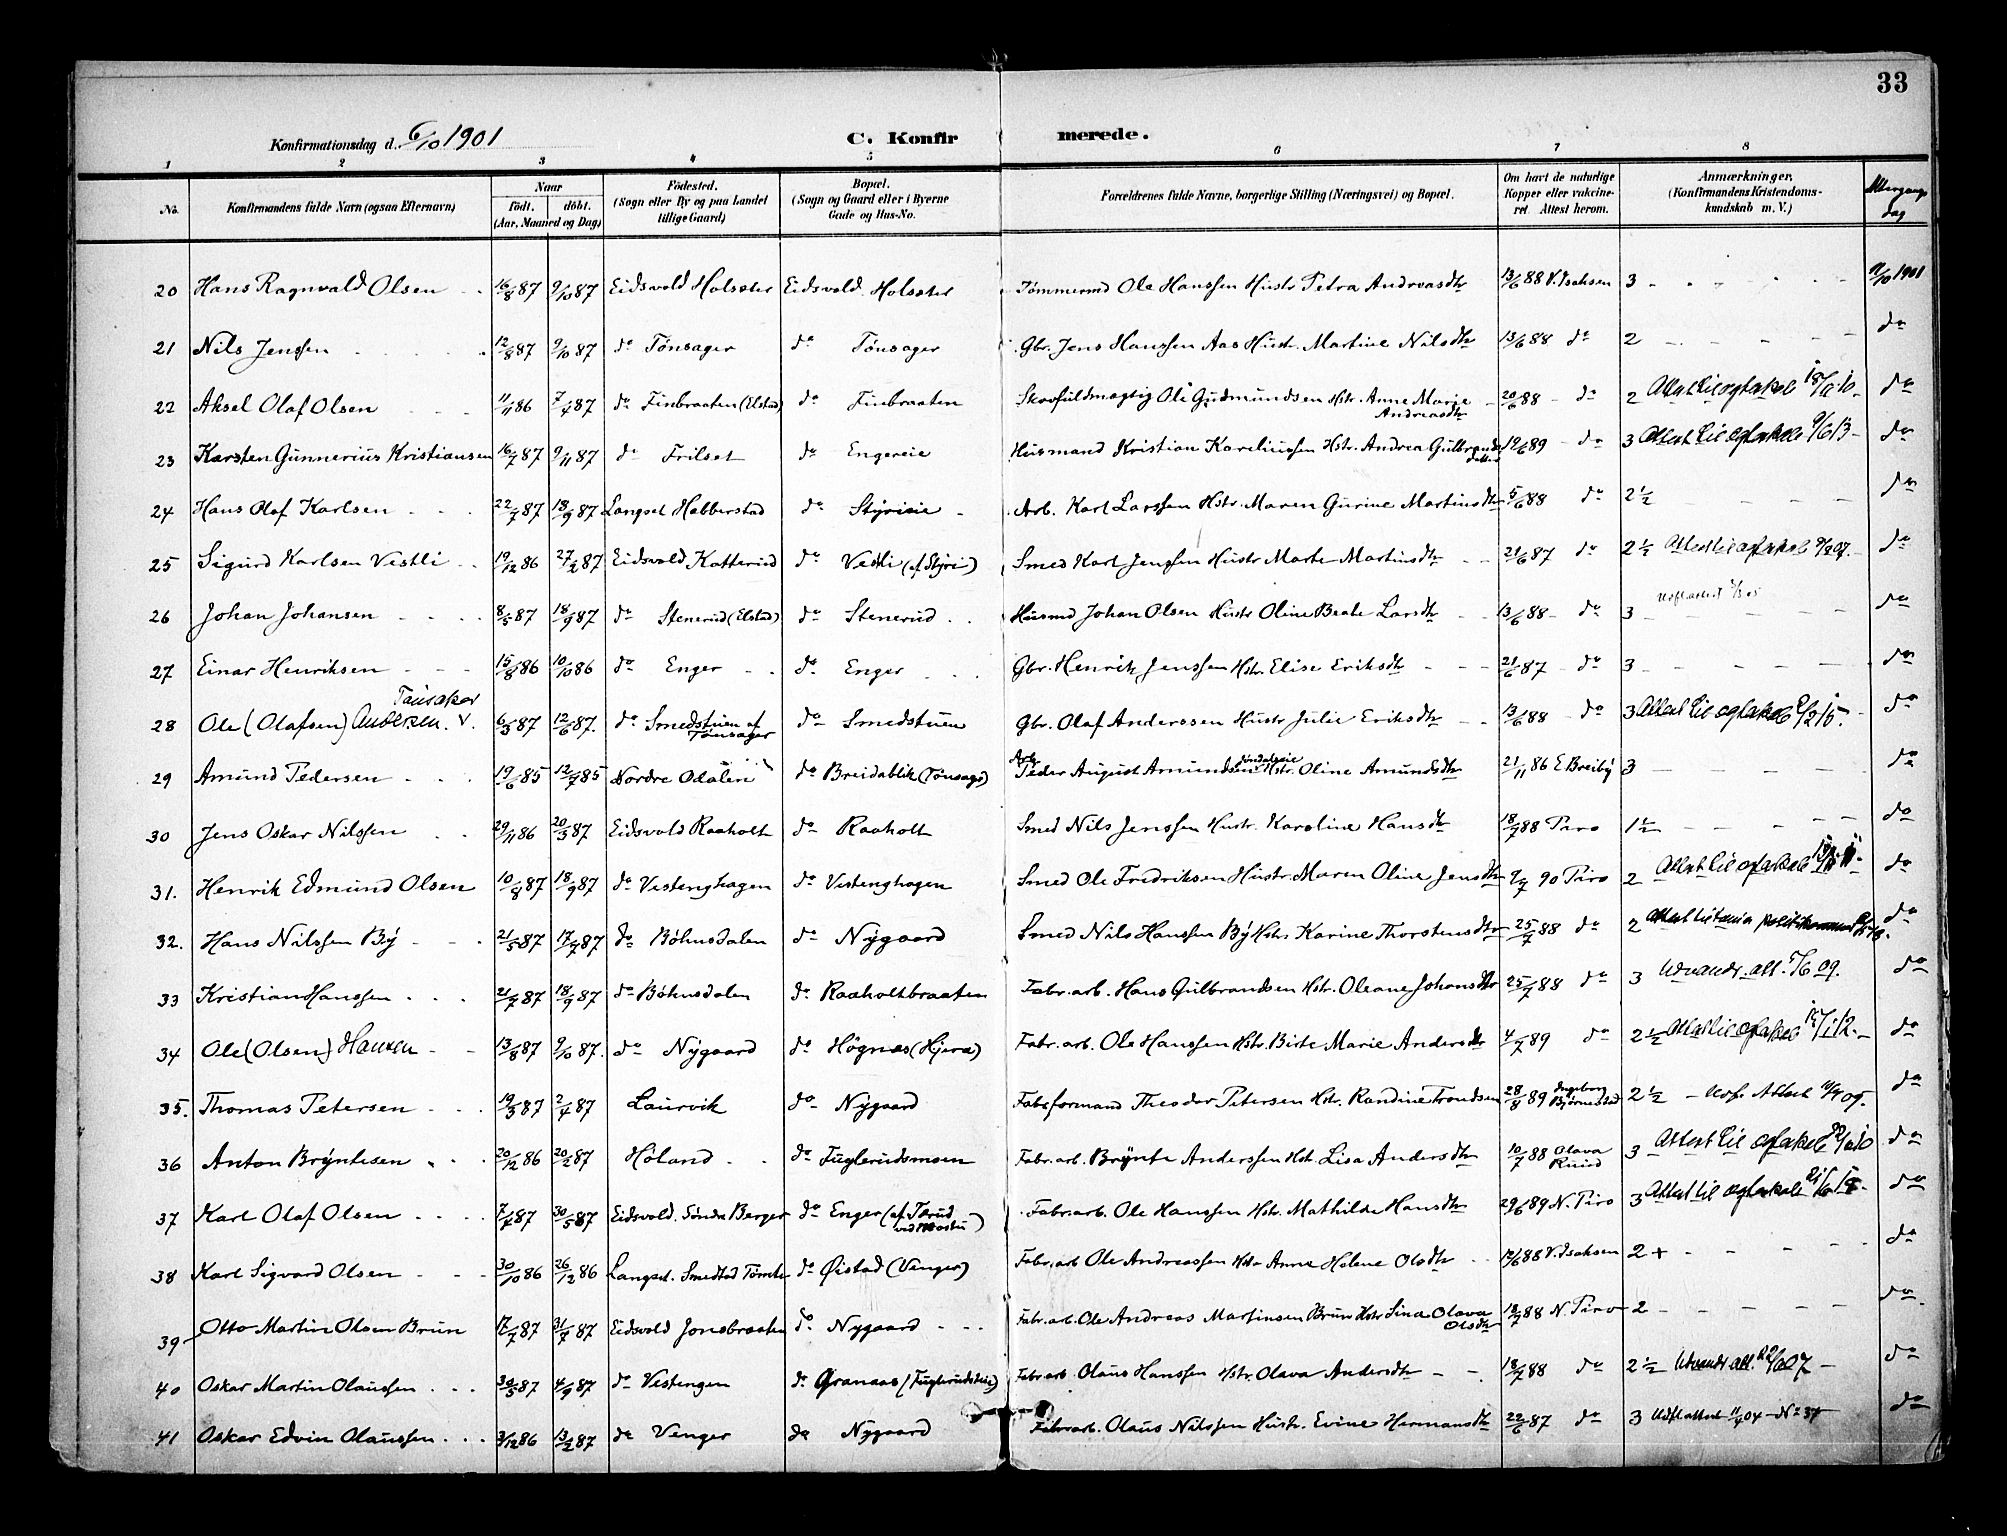 33
Konfirmationsdag d. 6/10 1901
C. Konfirmerede.
1 2 3 4 5 6 7 8
No. Konfirmandens fulde Navn (ogsaa Efternavn) Naar Født. døbt. (Aar, Maaned og Dag) Fødested. (Sogn eller By og paa Landet tillige Gaard) Bopæl. (Sogn og Gaard eller i Byerne Gade og Hus-No. Forældrenes fulde Navne, borgerlige Stilling (Næringsvei) og Bopæl. Om havt de naturlige Kopper eller vakcineret. Attest herom. Anmærkninger. (Konfirmandens Kristendomskundskab m. V.) Altergangsdag
20 Hans Ragnvald Olsen 16/8 87 9/10 87 Eidsvold Holseter Eidsvold Holseter Tømmermd Ole Hanssen Hustr Petra Andreasdtr 13/6 88 V. Isaksen 3 1901
21 Nils Jenssen 12/8 87 9/10 87 do Tönsager do Tönsager Gbr. Jens Hanssen Aas Hustr. Martine Nilsdtr 13/6 88 do 2 do
22 Aksel Olaf Olsen 11/11 86 7/4 87 do Finbraaten (Elstad) do Finbraaten Skovfuldmægtig Ole Gudmundsen Hstr. Anne Marie Andreasdtr 20/6 88 do 2 Attest til ogtaksel do
23 Karsten Gunnerius Kristiansen 16/7 87 9/11 87 do Frilset do Engereie Husmand Kristian Kareliussen Hstr. Andrea Gulbrandsdatter 19/6 89 do 3 Attest til ogtaksel do
24 Hans Olaf Karlsen 22/7 87 18/9 87 Langset Habberstad do Styrieie Arb. Karl Larssen Hstr. Maren Gurine Martinsdtr 5/6 88 do 2 1/2 do
25 Sigurd Karlsen Vestli 19/12 86 27/2 87 Eidsvold Katterud do Vestli (af Styri) Smed Karl Jenssen Hustr Marte Martinsdtr 21/6 87 do 2 1/2 Attest til ogtaksel do
26 Johan Johansen 8/5 87 18/9 87 do Stenerud (Elstad) do Stenerud Husmd Johan Olsen Hustr Oline Beate Larsdtr 13/6 88 do 3 do
27 Einar Henriksen 15/8 86 10/10 86 do Enger do Enger Gbr. Henrik Jenssen Hstr. Elise Eriksdtr 21/6 87 do 3 do
28 Ole (Olafsen) Andersen Tönsaker 6/3 87 12/6 87 do Smedstuen af Tönsager do Smedstuen Gbr. Olaf Anderssen Hustr Julie Eriksdtr 13/6 88 do 3 Attest til ogtaksel do
29 Amund Pedersen 19/6 85 12/7 85 Nordre Odalen do Breidablik (Tönsager) Arb. Peder August Amundsen Hstr. Oline Amundsdtr 21/11 86 E Breiby 3 do
30 Jens Oskar Nilssen 29/11 86 20/3 87 Eidsvold Raaholt do Raaholt Smed Nils Jenssen Hustr. Karoline Hansdtr 18/7 88 Piro 1 1/2 do
31. Henrik Edmund Olsen 10/8 87 18/9 87 do Vestenghagen do Vestenghagen Smed Ole Fredriksen Hustr. Maren Oline Jensdtr 9/7 90 Piro 2 Attest til ogtaksel do
32. Hans Nilssen By 21/5 87 17/7 87 do Böhnsdalen do Nygaard Smed Nils Hanssen By Hstr. Karine Thorstensdtr 25/7 88 do 2 do
33 Kristian Hanssen 21/7 87 18/9 87 do Böhnsdalen do Raaholtbraaten Fabr. arb. Hans Gulbrandsen Hstr. Oleane Johansdtr 25/7 88 do 3 Udvandr. att. 5/6 09. do
34 Ole (Olsen) Hansen 13/8 87 9/10 87. do Nygaard do Högnæs (Hjera) Fabr. arb. Ole Hanssen Hstr. Birte Marie Andersdtr 4/7 89 do 2 1/2 Attest til ogtaksel do
35. Thomas Petersen 19/3 87 2/4 87 Laurvik do Nygaard Fabr. formand Theodor Petersen Hstr. Randine Trondsen 28/8 89 Ingeborg Björnestad 2 1/2 Attest do
36 Anton Bryntesen 20/12 86 20/2 87 Höland do Fuglerudsmoen Fabr. arb. Brynte Anderssen Hstr. Lisa Andersdtr 10/7 88 Olava Ruud 3 Attest til ogtaksel do
37 Karl Olaf Olsen 7/7 87 30/5 87 Eidsvold. Söndre Berger do Enger Fabr. arb. Ole Hanssen Hstr. Mathilde Hansdtr 29/6 89 N. Piro 3 Attest til ogtaksel do
38 Karl Sigvard Olsen 30/10 86 26/12 86 Langset. Smedstad do Øistad (Venger) Fabr. arb Ole Andreassen Hstr Anne Helene Olsdtr V. Isaksen 2 + do
39 Otto Martin Olsen Brun 17/7 87 31/7 87 Eidsvold Jonsbraaten do Nygaard Fabr. arb. Ole Andreas Martinsen Brun Hstr Lina Olava Olsdtr 18/7 88 N. Piro 2 do
40 Oskar Martin Olaussen 30/5 87 4/9 87 do Vestengen do Granaas Fabr. arb. Olaus Hanssen Hstr. Olava Andersdtr 18/7 88 do 2 1/2 Udvandr. att. do
41 Oskar Edvin Olaussen 3/12 86 13/2 87 do Venger do Nygaard Fabr. arb. Olaus Nilssen Hustr. Evine Hermansdtr 22/6 87 do 3 Udfl. attest 11/4 04 No 37 do